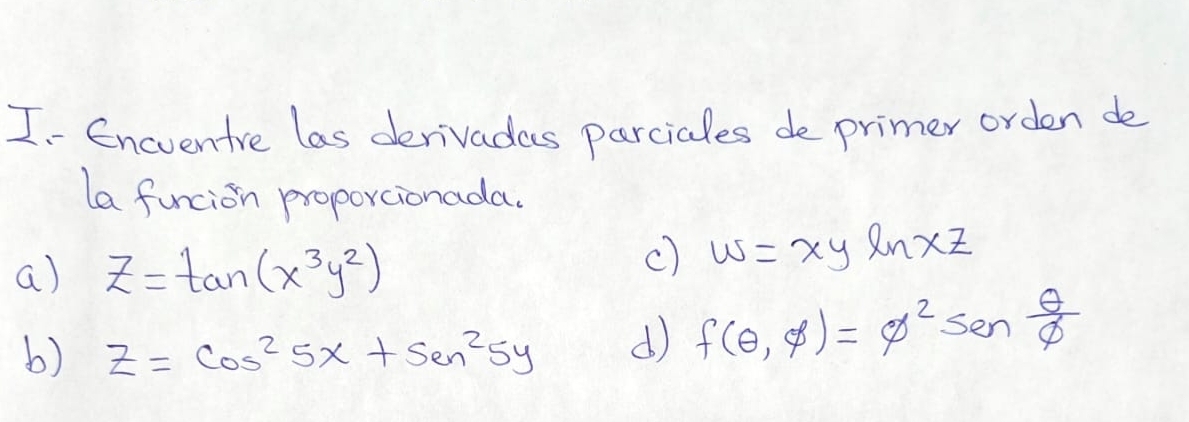 I.- Encuentre las derivadas parciales de primer orden de
la función proporcionada.
a) Z = tan(x³y²)
b) Z = Cos² 5x + Sen² 5y
c) w = xy lnxz
d) f(θ, φ) = φ² sen θ/φ